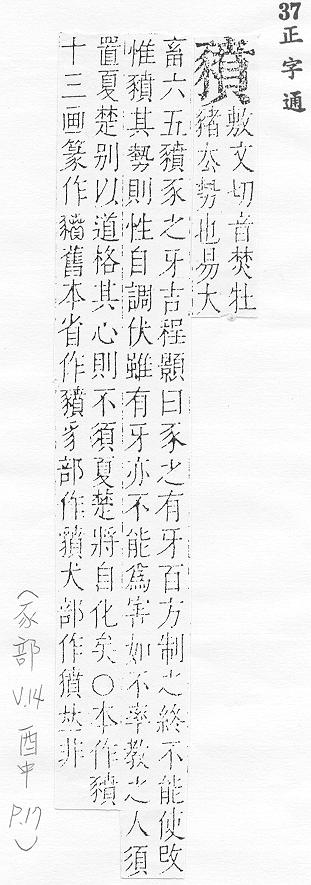 37正字通
豶
敷文切音焚牡
豬厺勢也易大
畜六五豶豕之牙吉程顥曰豕之有牙百方制之終不能使改
惟豶其勢則性自調伏雖有牙亦不能為害如不率教之人須
置夏楚別以道格其心則不須夏楚將自化矣○本作豶
十三画篆作豶舊本省作豶豸部作獖犬部作獖𠀤非
(豕部
V.14
酉中
P.17)